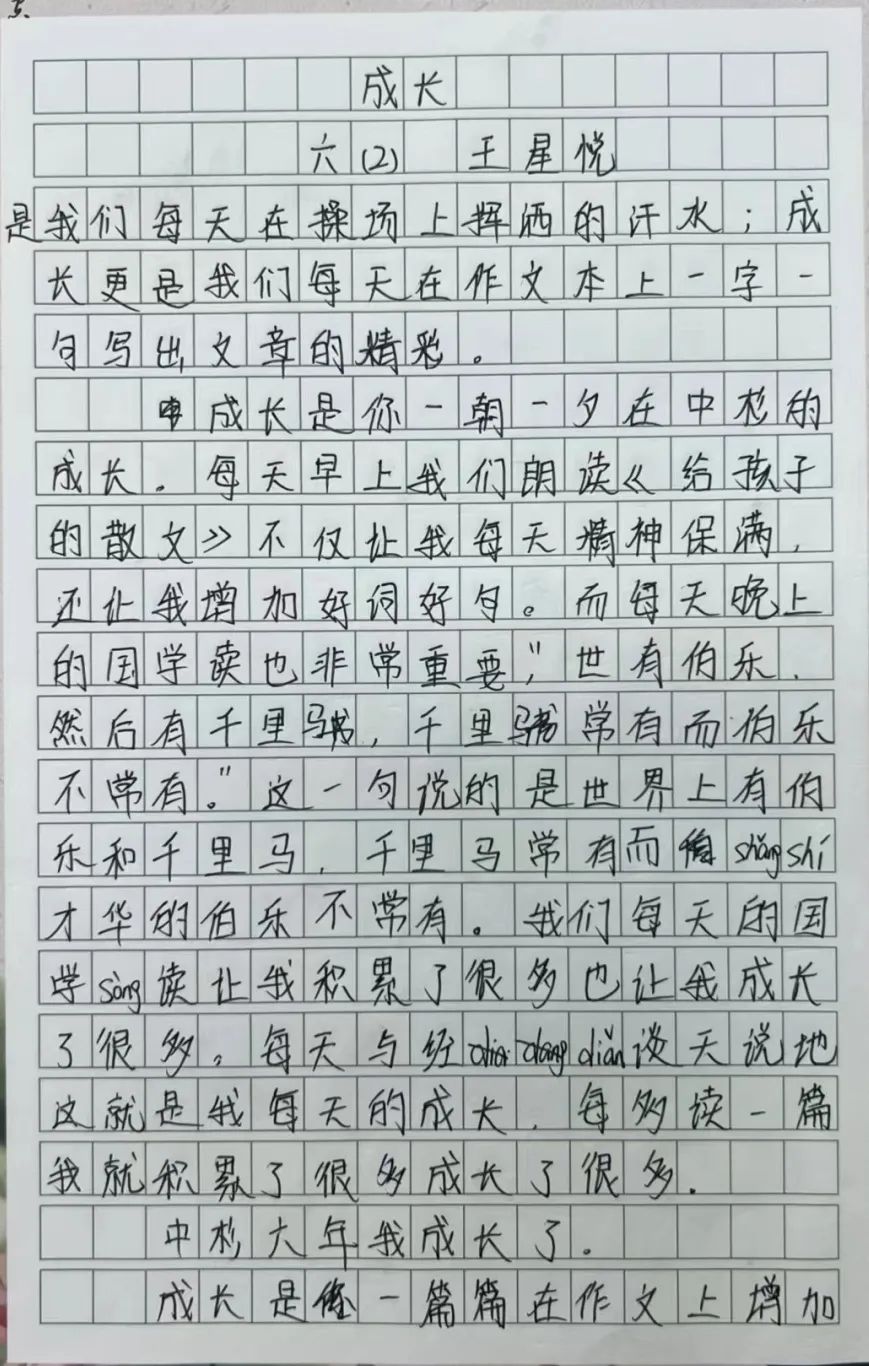 成长
六(2) 王星悦
是我们每天在操场上挥洒的汗水；成
长更是我们每天在作文本上一字一
句写出文章的精彩。
成长是你一朝一夕在中杉的
成长．每天早上我们朗读《给孩子
的散文》不仅让我每天精神保满，
还让我增加好词好句。而每天晚上
的国学读也非常重要，"世有伯乐．
然后有千里马，千里马常有而伯乐
不常有。"这一句说的是世界上有伯
乐和千里马．千里马常有而 shǎng shí
才华的伯乐不常有。我们每天的国
学sòng读让我积累了很多也让我成长
了很多。每天与经 diǎn谈天说地
这就是我每天的成长．每多读一篇
我就积累了很多成长了很多．
中杉六年我成长了．
成长是 一篇篇在作文上增加